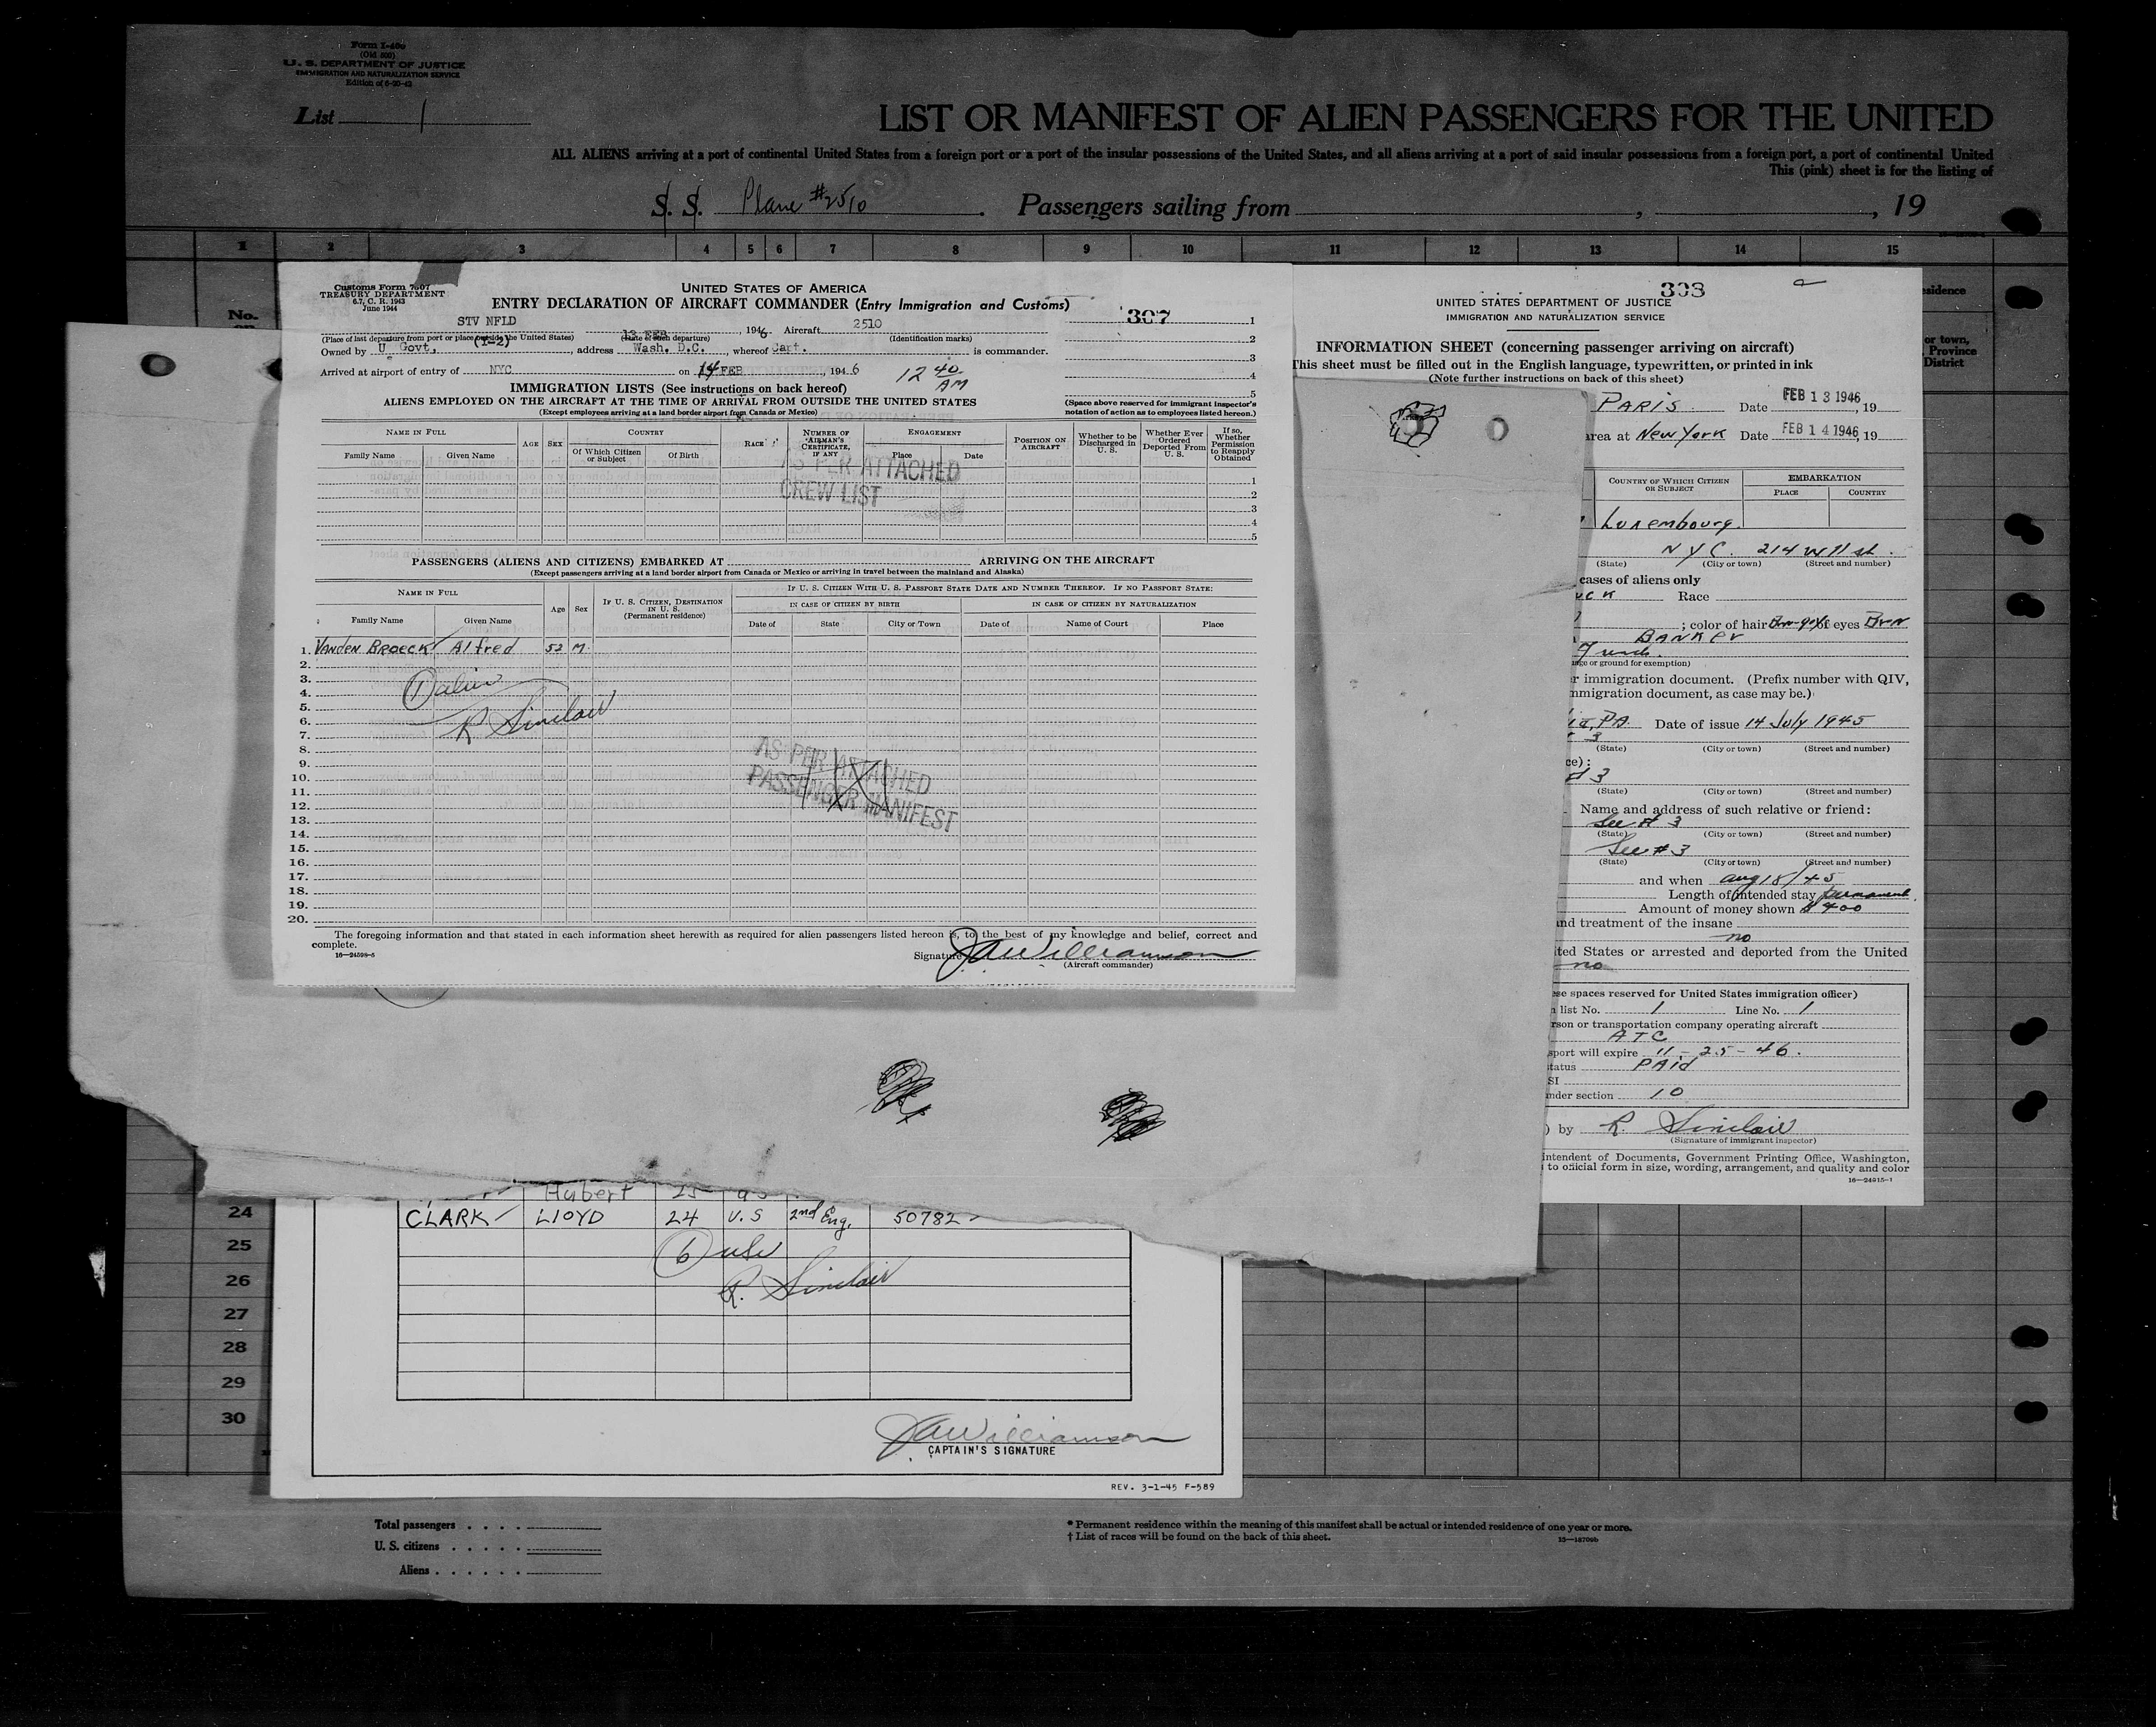 Form I-400
(Old 500)
U. S. DEPARTMENT OF JUSTICE
IMMIGRATION AND NATURALIZATION SERVICE
Edition of 6-20-42
List 1
LIST OR MANIFEST OF ALIEN PASSENGERS FOR THE UNITED
ALL ALIENS arriving at a port of continental United States from a foreign port or a port of the insular possessions of the United States, and all aliens arriving at a port of said insular possessions from a foreign port, a port of continental United
This (pink) sheet is for the listing of
S. S. Plane #2510. Passengers sailing from , , 19
1 2 3 4 5 6 7 8 9 10 11 12 13 14 15
No.
Customs Form 7507
TREASURY DEPARTMENT
6.7, C. R. 1943
June 1944
UNITED STATES OF AMERICA
ENTRY DECLARATION OF AIRCRAFT COMMANDER (Entry Immigration and Customs)
307
STV NFLD 13 FEB, 1946 Aircraft 2510
(Place of last departure from port or place outside the United States) (Date of such departure) (Identification marks)
(1-2)
Owned by U Govt., address Wash. D.C., whereof Capt. is commander.
Arrived at airport of entry of NYC on 14 FEB, 1946 12 40 AM
1
2
3
4
5
IMMIGRATION LISTS (See instructions on back hereof)
ALIENS EMPLOYED ON THE AIRCRAFT AT THE TIME OF ARRIVAL FROM OUTSIDE THE UNITED STATES
(Except employees arriving at a land border airport from Canada or Mexico)
(Space above reserved for immigrant inspector's
notation of action as to employees listed hereon.)
NAME IN FULL AGE SEX COUNTRY RACE NUMBER OF AIRMAN'S CERTIFICATE, IF ANY ENGAGEMENT POSITION ON AIRCRAFT Whether to be Discharged in U. S. Whether Ever Ordered Deported From U. S. If so, Whether Permission to Reapply Obtained
Family Name Given Name Of Which Citizen or Subject Of Birth Place Date
AS PER ATTACHED
CREW LIST
1
2
3
4
5
PASSENGERS (ALIENS AND CITIZENS) EMBARKED AT ARRIVING ON THE AIRCRAFT
(Except passengers arriving at a land border airport from Canada or Mexico or arriving in travel between the mainland and Alaska)
NAME IN FULL Age Sex IF U. S. CITIZEN, DESTINATION IN U. S. (Permanent residence) IF U. S. CITIZEN WITH U. S. PASSPORT STATE DATE AND NUMBER THEREOF. IF NO PASSPORT STATE:
IN CASE OF CITIZEN BY BIRTH IN CASE OF CITIZEN BY NATURALIZATION
Family Name Given Name Date of State City or Town Date of Name of Court Place
1. VANDEN BROECK Alfred 52 M.
2.
3. 1 alien
4.
5.
6. R Sinclair
7.
8. AS PER ATTACHED
9.
10. PASSENGER MANIFEST
11.
12.
13.
14.
15.
16.
17.
18.
19.
20.
The foregoing information and that stated in each information sheet herewith as required for alien passengers listed hereon is, to the best of my knowledge and belief, correct and
complete.
16-24598-5
Signature JAWilliamson
(Aircraft commander)
303
UNITED STATES DEPARTMENT OF JUSTICE
IMMIGRATION AND NATURALIZATION SERVICE
INFORMATION SHEET (concerning passenger arriving on aircraft)
This sheet must be filled out in the English language, typewritten, or printed in ink
(Note further instructions on back of this sheet)
PARIS Date FEB 13 1946, 19
area at New York Date FEB 14 1946, 19
COUNTRY OF WHICH CITIZEN OR SUBJECT EMBARKATION
PLACE COUNTRY
Luxembourg.
NYC. 214 W 11 st.
(State) (City or town) (Street and number)
cases of aliens only
Race
; color of hair eyes Brn
BANKER
French
or ground for exemption)
r immigration document. (Prefix number with QIV,
mmigration document, as case may be.)
PA. Date of issue 14 July 1945
(State) (City or town) (Street and number)
ce):
# 3
(State) (City or town) (Street and number)
Name and address of such relative or friend:
See # 3
(State) (City or town) (Street and number)
See # 3
(State) (City or town) (Street and number)
and when aug 18/45
Length of intended stay permanent
Amount of money shown $ 400
nd treatment of the insane
no
ited States or arrested and deported from the United
no
ese spaces reserved for United States immigration officer)
n list No. 1 Line No. 1
rson or transportation company operating aircraft
ATC
sport will expire 11-25-46.
tatus PAid
SI
nder section 10
) by R. Sinclair
(Signature of immigrant inspector)
intendent of Documents, Government Printing Office, Washington,
to official form in size, wording, arrangement, and quality and color
16-24915-1
sidence
or town,
Province
District
Hubert 25 US
24 CLARK LLOYD 24 U.S 2nd Eng. 50782
25 6 USC
26 R. Sinclair
27
28
29
30
JAWilliamson
CAPTAIN'S SIGNATURE
REV. 3-1-45 F-589
Total passengers . . . .
U. S. citizens . . . . .
Aliens . . . . . .
* Permanent residence within the meaning of this manifest shall be actual or intended residence of one year or more.
† List of races will be found on the back of this sheet.